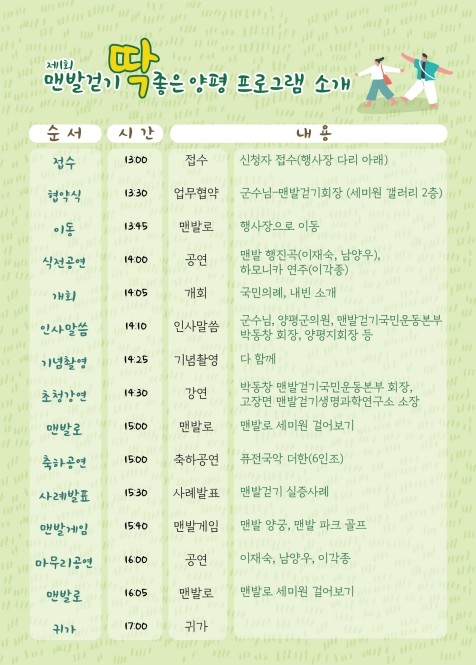 제1회
맨발걷기 딱 좋은 양평 프로그램 소개
순 서 시 간 내 용
접수 13:00 접수 신청자 접수(행사장 다리 아래)
협약식 13:30 업무협약 군수님-맨발걷기회장 (세미원 갤러리 2층)
이동 13:45 맨발로 행사장으로 이동
식전공연 14:00 공연 맨발 행진곡(이재숙, 남양우),
하모니카 연주(이각종)
개회 14:05 개회 국민의례, 내빈 소개
인사말씀 14:10 인사말씀 군수님, 양평군의원, 맨발걷기국민운동본부
박동창 회장, 양평지회장 등
기념촬영 14:25 기념촬영 다 함께
초청강연 14:30 강연 박동창 맨발걷기국민운동본부 회장,
고장면 맨발걷기생명과학연구소 소장
맨발로 15:00 맨발로 맨발로 세미원 걸어보기
축하공연 15:00 축하공연 퓨전국악 더한(6인조)
사례발표 15:30 사례발표 맨발걷기 실증사례
맨발게임 15:40 맨발게임 맨발 양궁, 맨발 파크 골프
마무리공연 16:00 공연 이재숙, 남양우, 이각종
맨발로 16:05 맨발로 맨발로 세미원 걸어보기
귀가 17:00 귀가